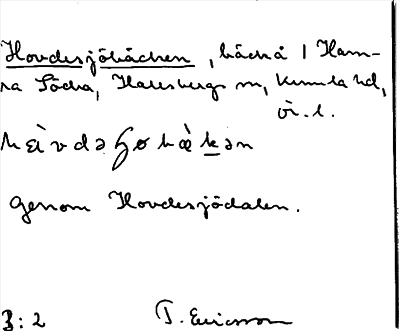 Hovdesjöbäcken, bäck å 1 Ham-
ra Södra, Hallsbergs m, Kumla hd,
ör. l.
Genom Hovdesjödalen.
3:2 T. Ericsson